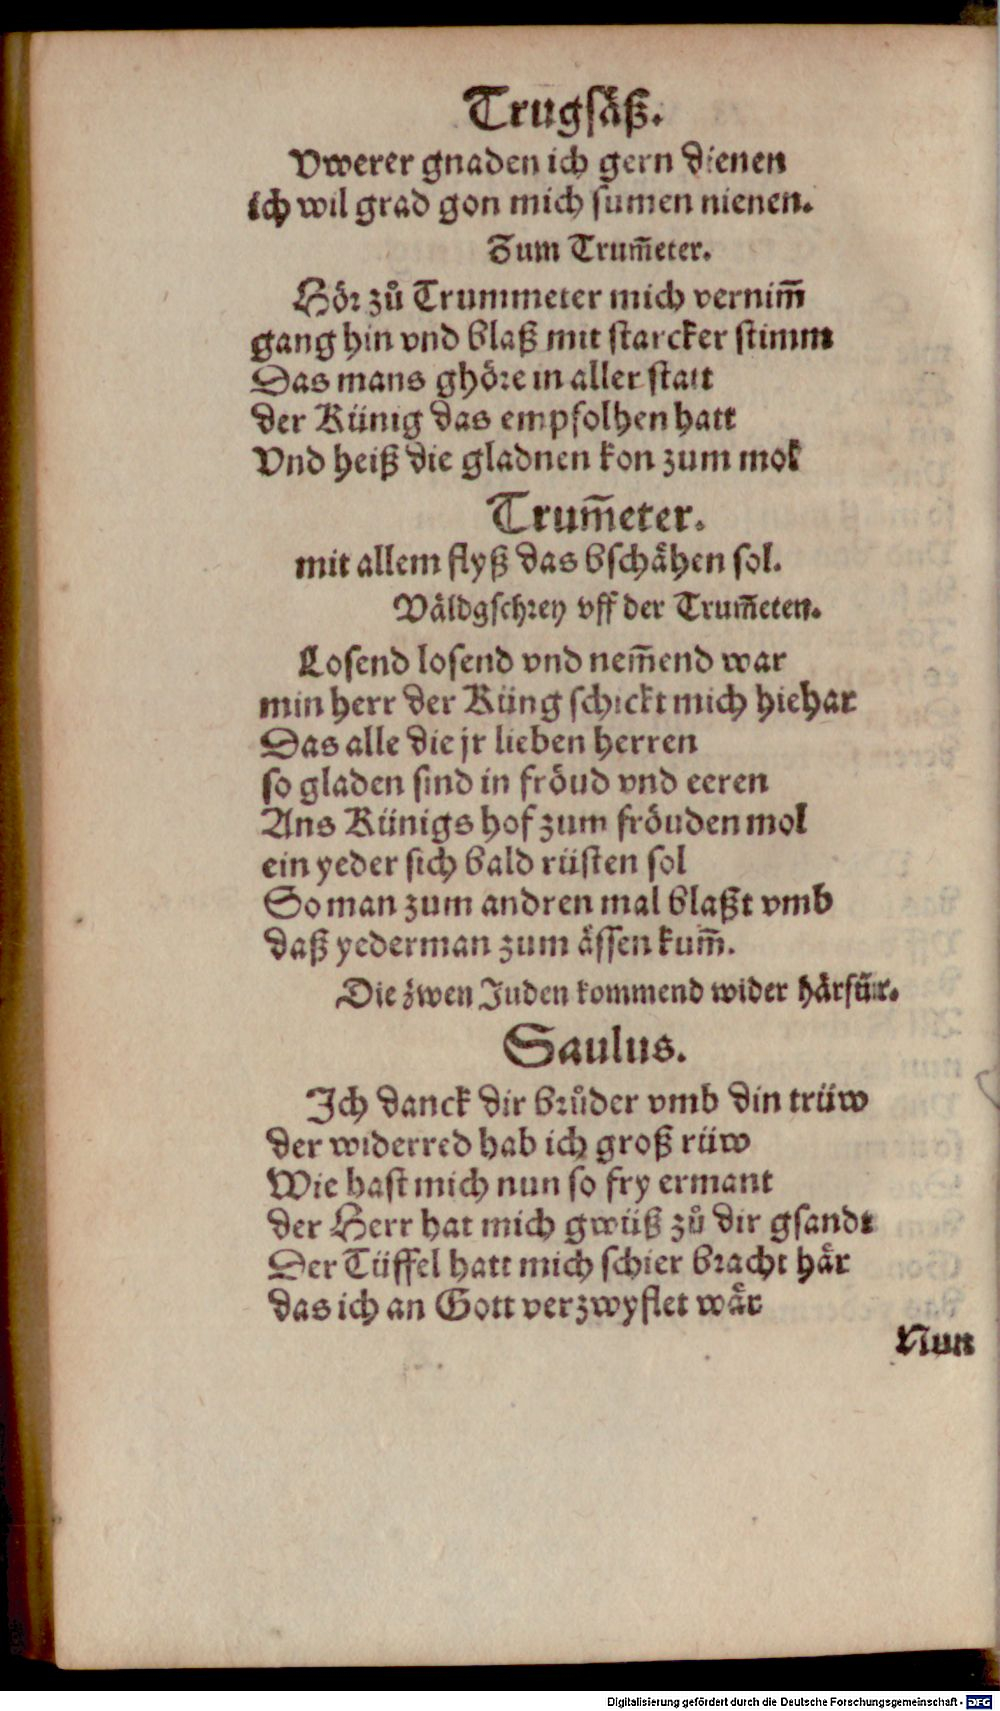 Trugsäß.
Vwerer gnaden ich gern dienen
ich wil grad gon mich sumen nienen.
Zum Trum̄eter.
Hör zů Trummeter mich vernim̄
gang hin vnd blaß mit starcker stimm
Das mans ghöre in aller statt
der Künig das empfolhen hatt
Vnd heiß die gladnen kon zum mol
Trum̄eter.
mit allem flyß das bschähen sol.
Väldgschrey vff der Trum̄eten.
Losend losend vnd nem̄end war
min herr der Küng schickt mich hiehar
Das alle die jr lieben herren
so gladen sind in fröud vnd eeren
Ans Künigs hof zum fröuden mol
ein yeder sich bald rüsten sol
So man zum andren mal blaßt vmb
daß yederman zum ässen kum̄.
Die zwen Juden kommend wider härfür.
Saulus.
Ich danck dir brůder vmb din trüw
der widerred hab ich groß rüw
Wie hast mich nun so fry ermant
der Herr hat mich gwüß zů dir gsandt
Der Tüffel hatt mich schier bracht här
das ich an Gott verzwyflet wär
Nun
Digitalisierung gefördert durch die Deutsche Forschungsgemeinschaft - DFG